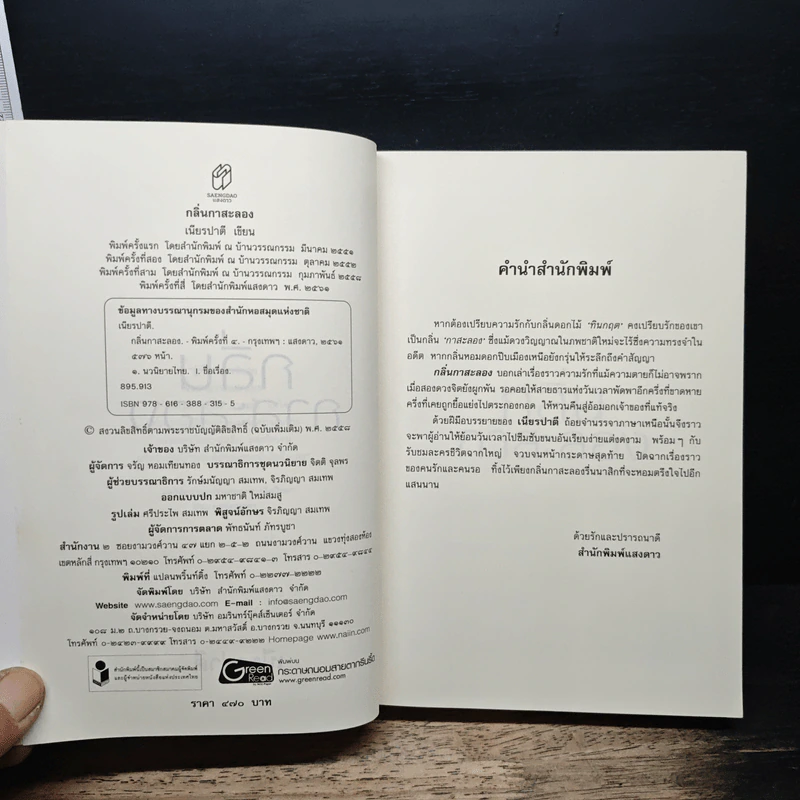 SAENGDAO
แสงดาว
กลิ่นกาสะลอง
เนียรปาตี เขียน
พิมพ์ครั้งแรก โดยสำนักพิมพ์ ณ บ้านวรรณกรรม มีนาคม ๒๕๕๑
พิมพ์ครั้งที่สอง โดยสำนักพิมพ์ ณ บ้านวรรณกรรม ตุลาคม ๒๕๕๒
พิมพ์ครั้งที่สาม โดยสำนักพิมพ์ ณ บ้านวรรณกรรม กุมภาพันธ์ ๒๕๕๘
พิมพ์ครั้งที่สี่ โดยสำนักพิมพ์แสงดาว พ.ศ. ๒๕๖๑
ข้อมูลทางบรรณานุกรมของสำนักหอสมุดแห่งชาติ
เนียรปาตี.
กลิ่นกาสะลอง. - พิมพ์ครั้งที่ ๔. - กรุงเทพฯ : แสงดาว, ๒๕๖๑
๕๗๖ หน้า.
๑. นวนิยายไทย. I. ชื่อเรื่อง.
895.913
ISBN 978 - 616 - 388 - 315 - 5
© สงวนลิขสิทธิ์ตามพระราชบัญญัติลิขสิทธิ์ (ฉบับเพิ่มเติม) พ.ศ. ๒๕๕๘
เจ้าของ บริษัท สำนักพิมพ์แสงดาว จำกัด
ผู้จัดการ จรัญ หอมเทียนทอง บรรณาธิการชุดนวนิยาย จิตติ จุลพร
ผู้ช่วยบรรณาธิการ รักษ์มนัญญา สมเทพ, จิรภิญญา สมเทพ
ออกแบบปก มหาชาติ ใหม่สมสู
รูปเล่ม ศรีประไพ สมเทพ พิสูจน์อักษร จิรภิญญา สมเทพ
ผู้จัดการการตลาด พัทธนันท์ ภัทรบูชา
สำนักงาน ๒ ซอยงามวงศ์วาน ๔๗ แยก ๒-๕-๒ ถนนงามวงศ์วาน แขวงทุ่งสองห้อง
เขตหลักสี่ กรุงเทพฯ ๑๐๒๑๐ โทรศัพท์ ๐-๒๙๕๔-๙๘๔๑-๓ โทรสาร ๐-๒๙๕๔-๙๘๔๔
พิมพ์ที่ แปลนพริ้นท์ติ้ง โทรศัพท์ ๐-๒๒๗๗-๒๒๒๒
จัดพิมพ์โดย บริษัท สำนักพิมพ์แสงดาว จำกัด
Website www.saengdao.com E-mail : info@saengdao.com
จัดจำหน่ายโดย บริษัท อมรินทร์บุ๊คส์เซ็นเตอร์ จำกัด
๑๐๘ ม.๒ ถ.บางกรวย-จงถนอม ต.มหาสวัสดิ์ อ.บางกรวย จ.นนทบุรี ๑๑๑๓๐
โทรศัพท์ ๐-๒๔๒๓-๙๙๙๙ โทรสาร ๐-๒๔๔๙-๙๒๒๒ Homepage www.naiin.com
สำนักพิมพ์นี้เป็นสมาชิกสมาคมผู้จัดพิมพ์
และผู้จำหน่ายหนังสือแห่งประเทศไทย
Green Read
พิมพ์บน
กระดาษถนอมสายตากรีนรี้ด
www.greenread.com
ราคา ๔๗๐ บาท
คำนำสำนักพิมพ์
หากต้องเปรียบความรักกับกลิ่นดอกไม้ 'ทินกฤต' คงเปรียบรักของเขา
เป็นกลิ่น 'กาสะลอง' ซึ่งแม้ดวงวิญญาณในภพชาติใหม่จะไร้ซึ่งความทรงจำใน
อดีต หากกลิ่นหอมดอกปีบเมืองเหนือยังกรุ่นให้ระลึกถึงคำสัญญา
กลิ่นกาสะลอง บอกเล่าเรื่องราวความรักที่แม้ความตายก็ไม่อาจพราก
เมื่อสองดวงจิตยังผูกพัน รอคอยให้สายธารแห่งวันเวลาพัดพาอีกครึ่งที่ขาดหาย
ครึ่งที่เคยถูกยื้อแย่งไปตระกองกอด ให้หวนคืนสู่อ้อมอกเจ้าของที่แท้จริง
ด้วยฝีมือบรรยายของ เนียรปาตี ถ้อยจำนรรจาภาษาเหนือนั้นจึงราว
จะพาผู้อ่านให้ย้อนวันเวลาไปซึมซับขนบอันเรียบง่ายแต่งดงาม พร้อมๆ กับ
รับชมละครชีวิตฉากใหญ่ จวบจนหน้ากระดาษสุดท้าย ปิดฉากเรื่องราว
ของคนรักและคนรอ ทิ้งไว้เพียงกลิ่นกาสะลองรื่นนาสิกที่จะหอมตรึงใจไปอีก
แสนนาน
ด้วยรักและปรารถนาดี
สำนักพิมพ์แสงดาว